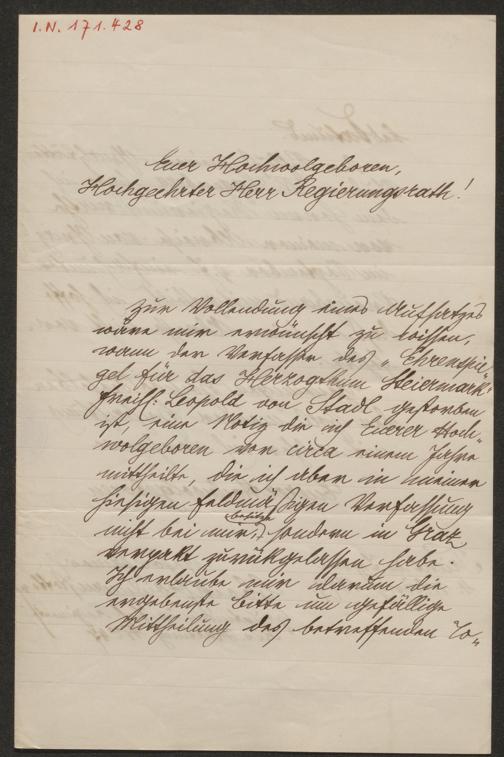 I.N. 171.428
Euer Hochwolgeboren,
Hochgeehrter Herr Regierungsrath!
Zur Vollendung eines Aufsatzes
wäre mir erwünscht zu wissen,
wann der Verfasser des „Ehrenspie
gel für das Herzogthum Steiermark"
Freih. Leopold von Stadl gestorben
ist, eine Notiz die ich Euerer Hoch-
wolgeboren vor circa einem Jahre
mittheilte, die ich aber in meiner
hiesigen feldmäßigen Verfassung
nicht bei mir besitze, sondern in Graz
verpakt zurükgelassen habe.
Ich erlaube mir darum die
ergebenste Bitte um gefällige
Mittheilung des betreffenden To-